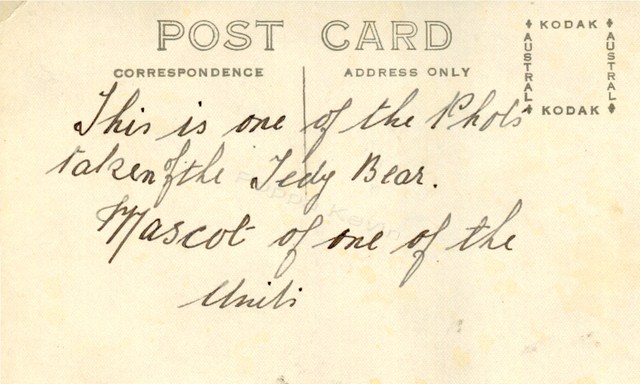 POST CARD
CORRESPONDENCE
ADDRESS ONLY
KODAK
AUSTRAL
AUSTRAL
KODAK
This is one of the Phots
taken of the Tedy Bear.
Mascot of one of the
Units